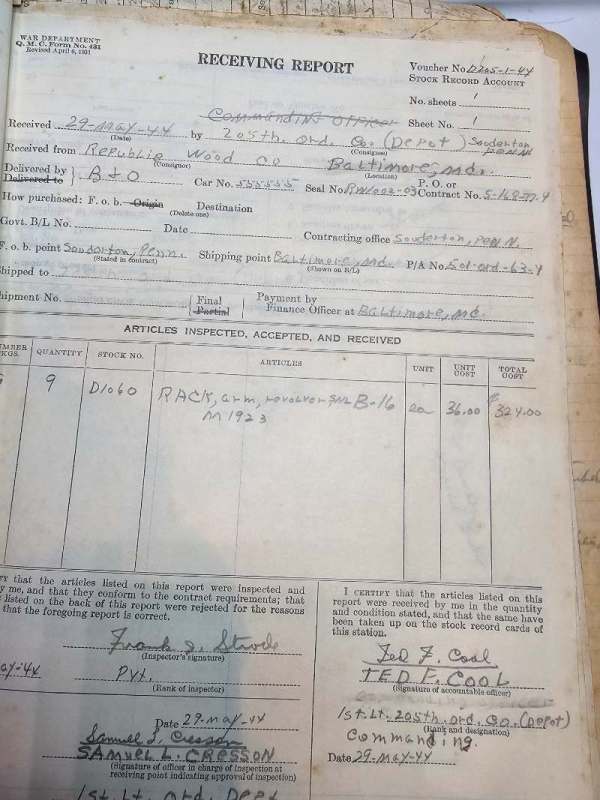 WAR DEPARTMENT
Q. M. C. Form No. 431
Revised April 6, 1931
RECEIVING REPORT
Voucher No. D205-1-44
STOCK RECORD ACCOUNT
No. sheets 1
Commanding Officer
Sheet No. 1
Received 29-May-44 by 205th. ord. Co. (Depot) Souderton PENN
(Date) (Consignee)
Received from Republic Wood Co Baltimore, Md.
(Consignor) (Location)
Delivered by
Delivered to } B & O Car No. 555555 Seal No. P. O. or Contract No.
How purchased: F. o. b. Origin Destination
(Delete one)
Govt. B/L No. Date Contracting office Souderton, PENN.
F. o. b. point Souderton, Penn. Shipping point Baltimore, Md. P/A No. 501-ord-63-4
(Stated in contract) (Shown on B/L)
Shipped to
Shipment No. { Final Partial Payment by Finance Officer at Baltimore, Md.
ARTICLES INSPECTED, ACCEPTED, AND RECEIVED
NUMBER PKGS. QUANTITY STOCK NO. ARTICLES UNIT UNIT COST TOTAL COST
9 D1060 RACK, arm, revolver SNL B-16 ea 36.00 $324.00
M1923
that the articles listed on this report were inspected and
by me, and that they conform to the contract requirements; that
listed on the back of this report were rejected for the reasons
that the foregoing report is correct.
Frank S. Strode
(Inspector's signature)
May-44 Pvt.
(Rank of inspector)
Date 29-May-44
Samuel L. Cresson
SAMUEL L. CRESSON
(Signature of officer in charge of inspection at
receiving point indicating approval of inspection)
1st. Lt. ord. Dept
I CERTIFY that the articles listed on this
report were received by me in the quantity
and condition stated, and that the same have
been taken up on the stock record cards of
this station.
Ted F. Cool
TED F. COOL
(Signature of accountable officer)
1st. Lt. 205th. ord. Co. (Depot)
(Rank and designation)
Commanding.
Date 29-May-44